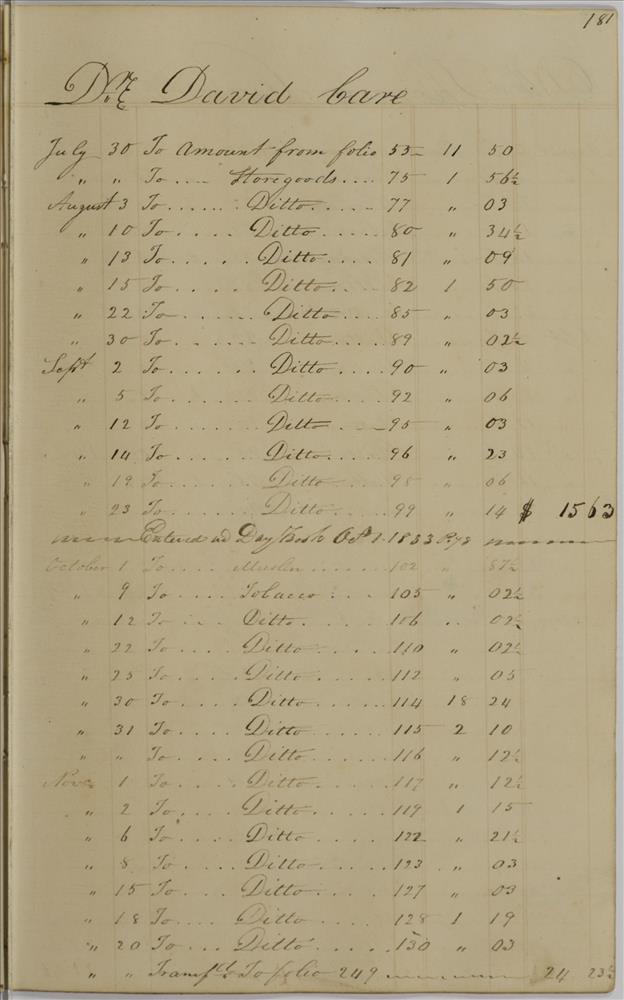 181
Dr. David Care
July 30 To Amount from folio 55 11 50
" " To .... Storegoods .... 75 1 56½
August 3 To ...... Ditto ..... 77 " 03
" 10 To .... Ditto ..... 80 " 34½
" 13 To ..... Ditto .... 81 " 09
" 15 To ..... Ditto .. 82 1 50
" 22 To ...... Ditto .... 85 " 03
" 30 To ...... Ditto .... 89 " 02½
Sept 2 To ...... Ditto .... 90 " 03
" 5 To ...... Ditto .... 92 " 06
" 12 To ...... Ditto ... 95 " 03
" 14 To ...... Ditto .... 96 " 23
" 19 To ...... Ditto .... 98 " 06
" 23 To ...... Ditto .... 99 " 14 $ 15 63
Entered in Day Book Oct 1. 1833 P. 72
October 1 To .... Muslin ...... 102 " 87½
" 9 To .... Tobacco ... 105 " 02½
" 12 To .... Ditto ..... 106 " 02½
" 22 To .... Ditto ..... 110 " 02½
" 25 To .... Ditto ..... 112 " 05
" 30 To .... Ditto ..... 114 18 24
" 31 To .... Ditto ..... 115 2 10
" " To .... Ditto ..... 116 " 12½
Nove 1 To .... Ditto ..... 117 " 12½
" 2 To .... Ditto .... 119 1 15
" 6 To .... Ditto .... 122 " 21½
" 8 To .... Ditto .... 123 " 03
" 15 To .... Ditto .... 127 " 03
" 18 To .... Ditto .... 128 1 19
" 20 To .... Ditto ..... 130 " 03
" " Transfd To folio 249 24 23½